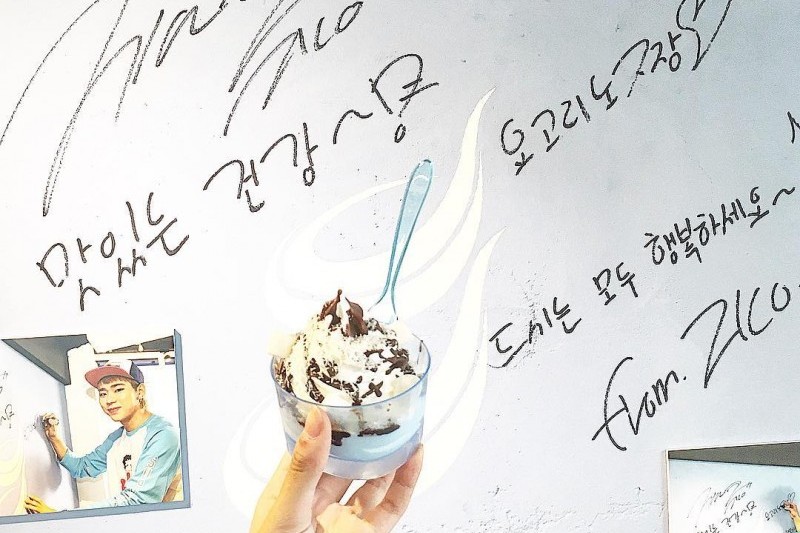 Zico
맛있는 건강~
요고리노
드시는 모두 행복하세요~
from. ZICO